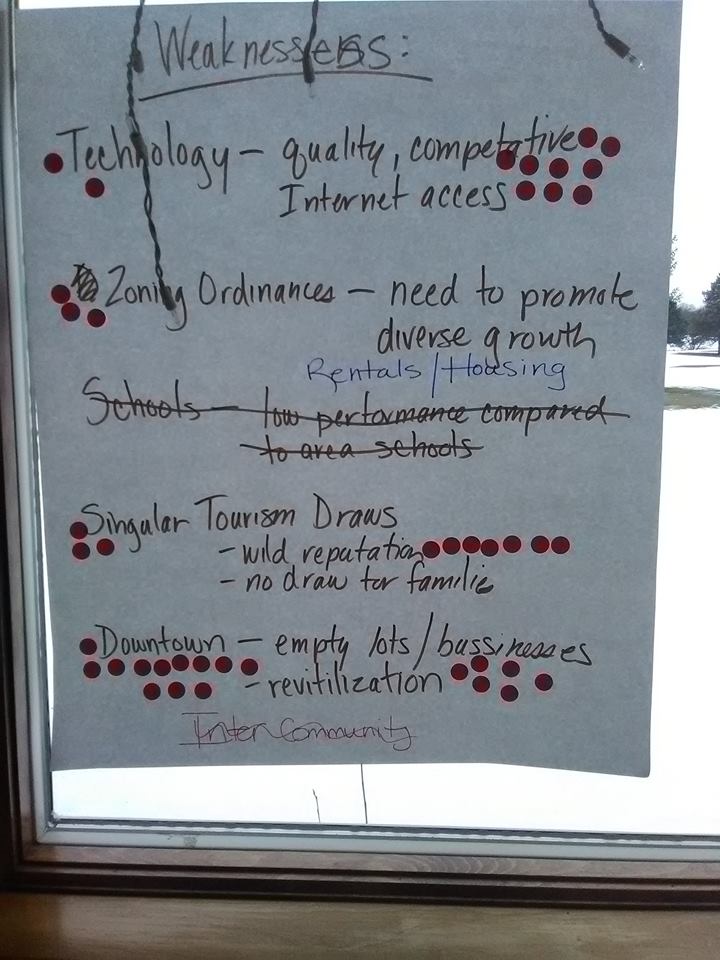 Weaknesses:
Technology - quality, competative
Internet access
Zoning Ordinances - need to promote
diverse growth
Rentals/Housing
Schools - low performance compared
to area schools
Singular Tourism Draws
- wild reputation
- no draw for familie
Downtown - empty lots/bussinesses
- revitilization
Inter Community